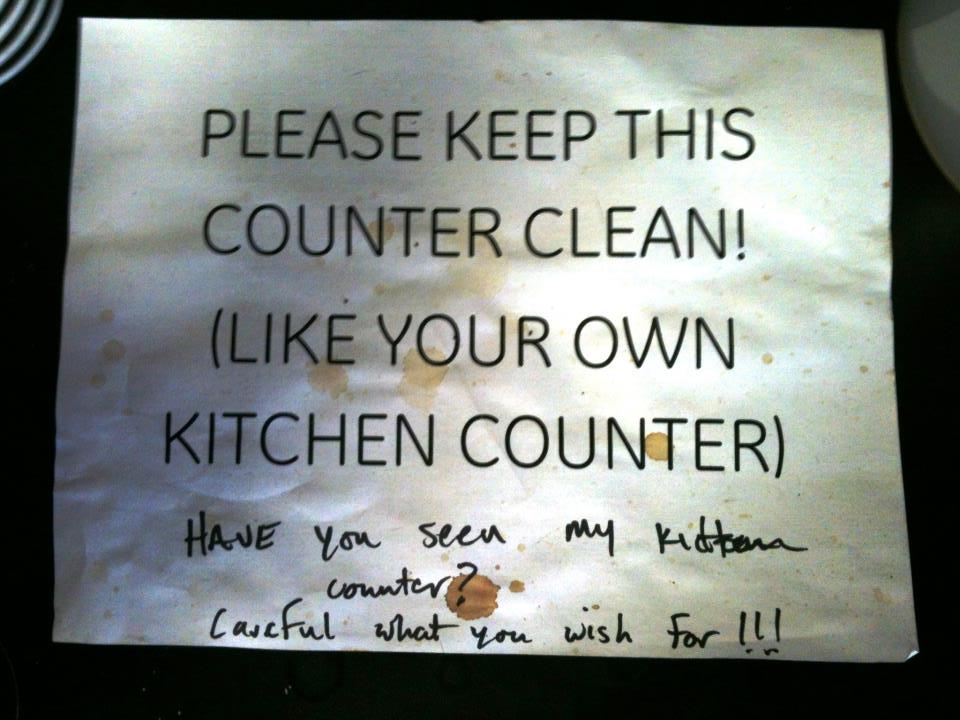 PLEASE KEEP THIS
COUNTER CLEAN!
(LIKE YOUR OWN
KITCHEN COUNTER)
HAVE you seen my
counter?
Careful what you wish for !!!